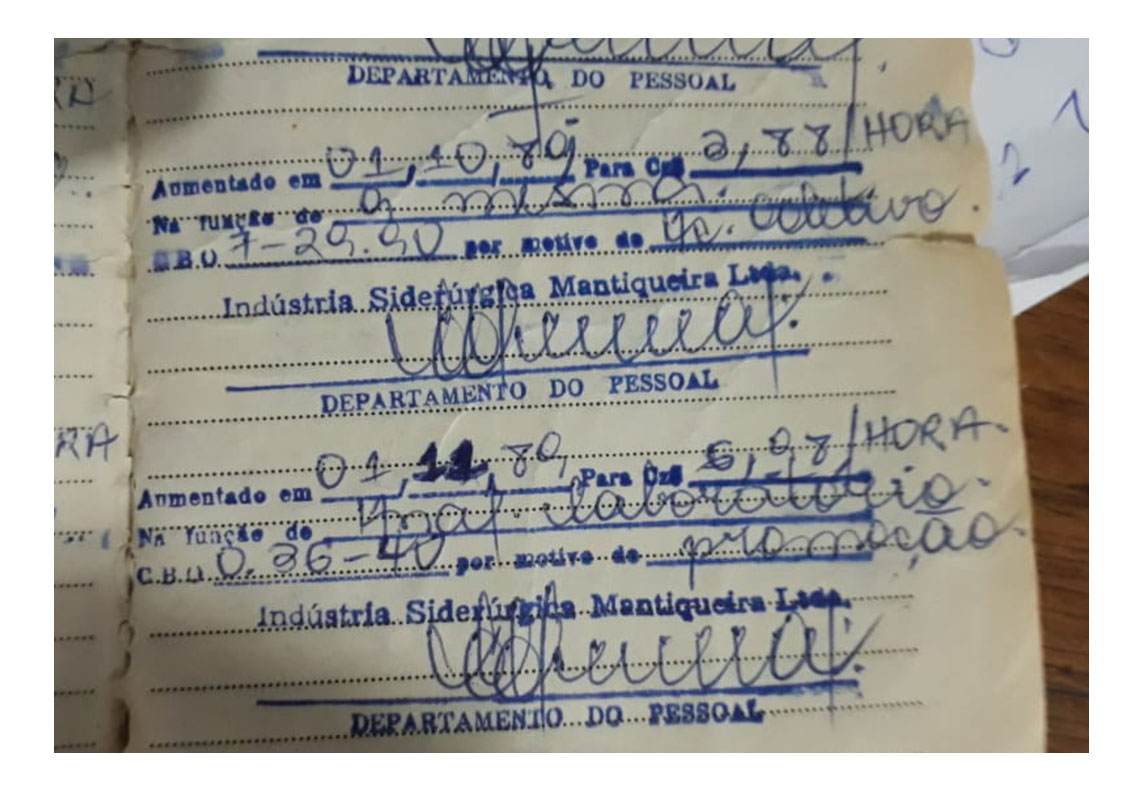 DEPARTAMENTO DO PESSOAL
Aumentado em 01,10,89 Para Cz$ 3,88/HORA
Na função de a mesma.
C.B.O. 7-29.90 por motivo de coletivo.
Indústria Siderúrgica Mantiqueira Ltda.
DEPARTAMENTO DO PESSOAL
RA
Aumentado em 01,11,89, Para Cz$ /HORA.
Na função de laboratório.
C.B.O. 0.36-40 por motivo de promoção.
Indústria Siderúrgica Mantiqueira Ltda.
DEPARTAMENTO DO PESSOAL